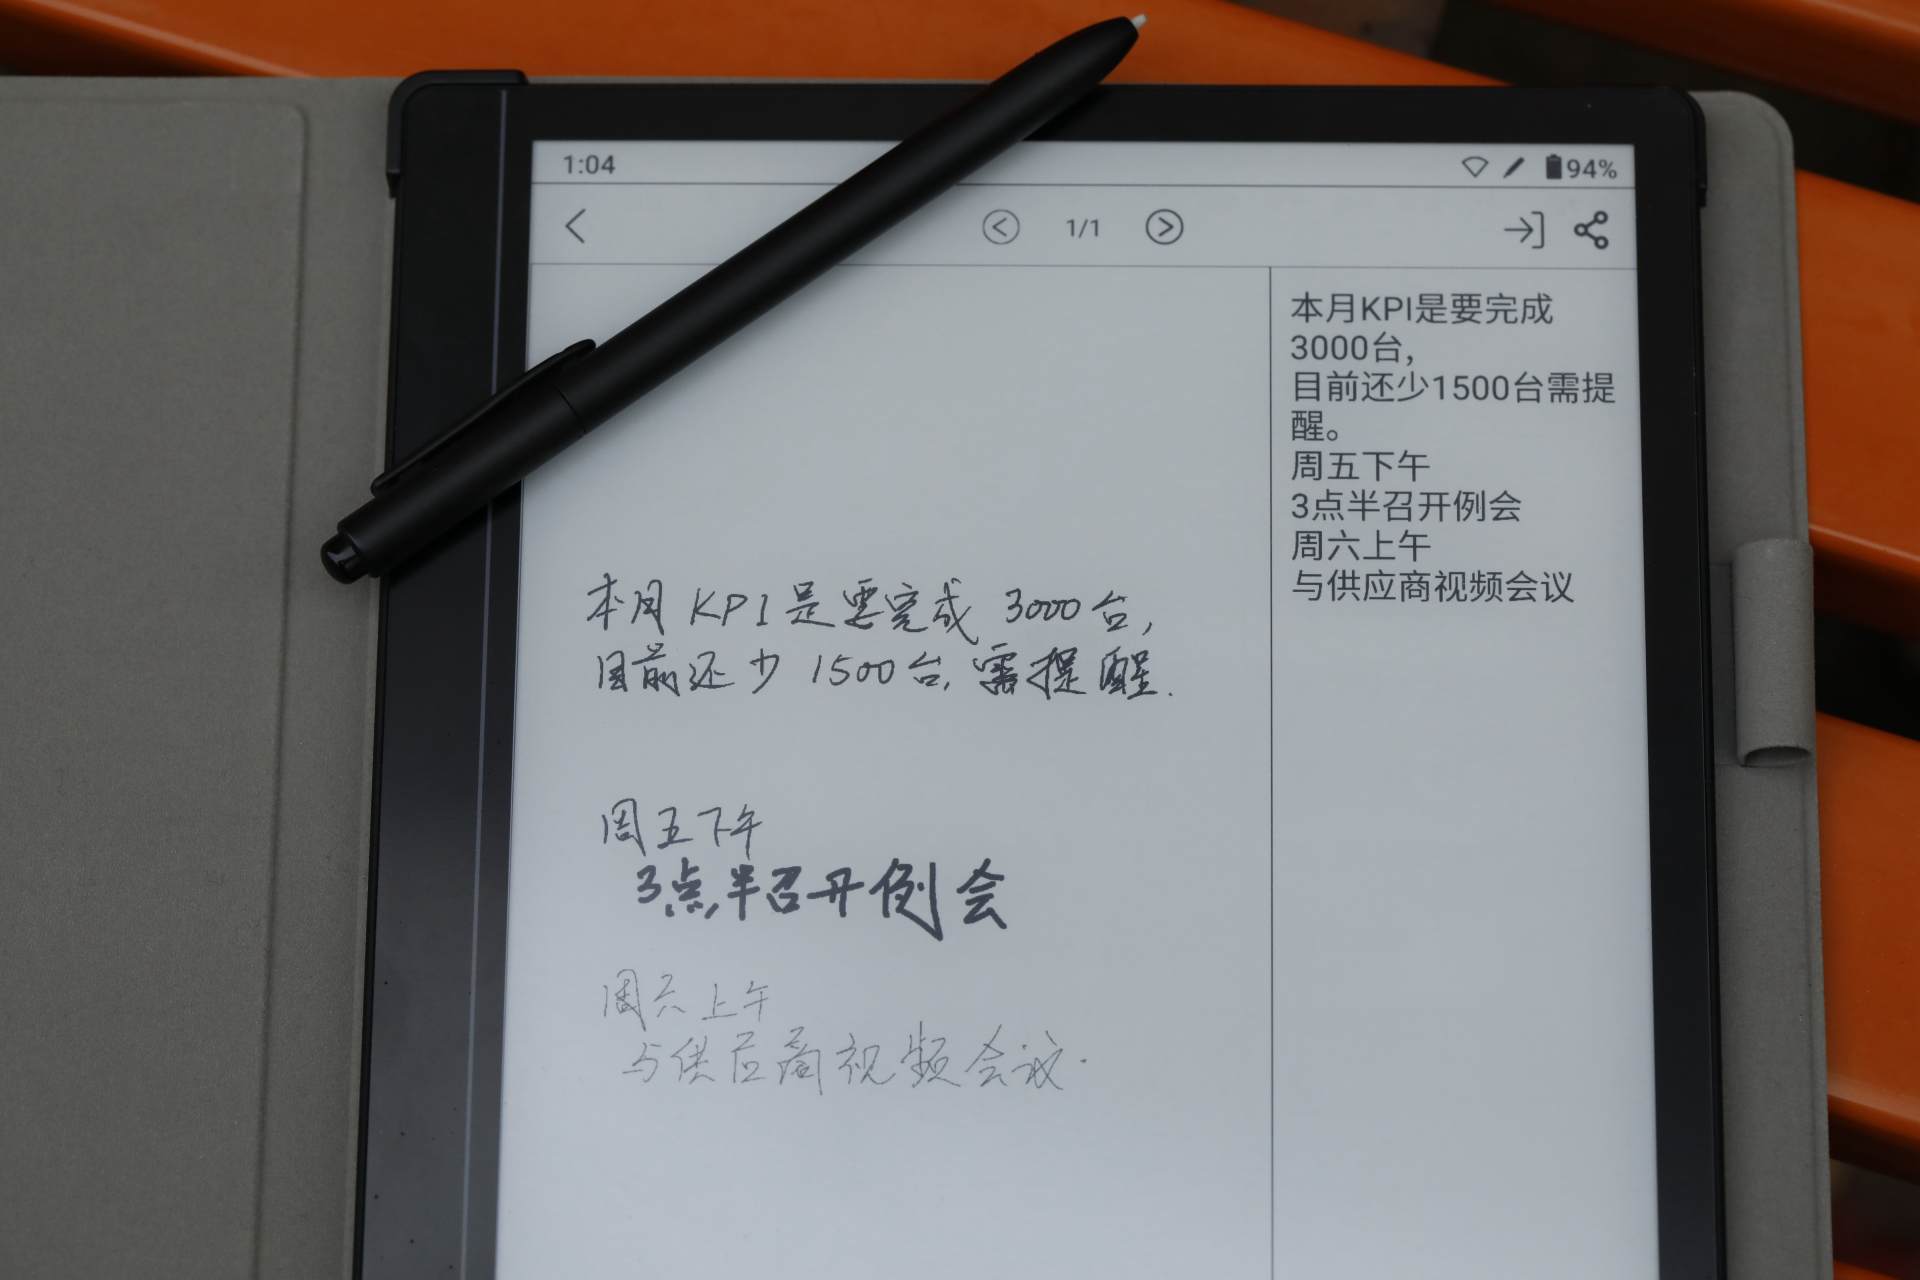 1:04
94%
1/1
本月KPI是要完成3000台,
目前还少1500台,需提醒.
周五下午
3点半召开例会
周六上午
与供应商视频会议.
本月KPI是要完成
3000台,
目前还少1500台需提
醒。
周五下午
3点半召开例会
周六上午
与供应商视频会议